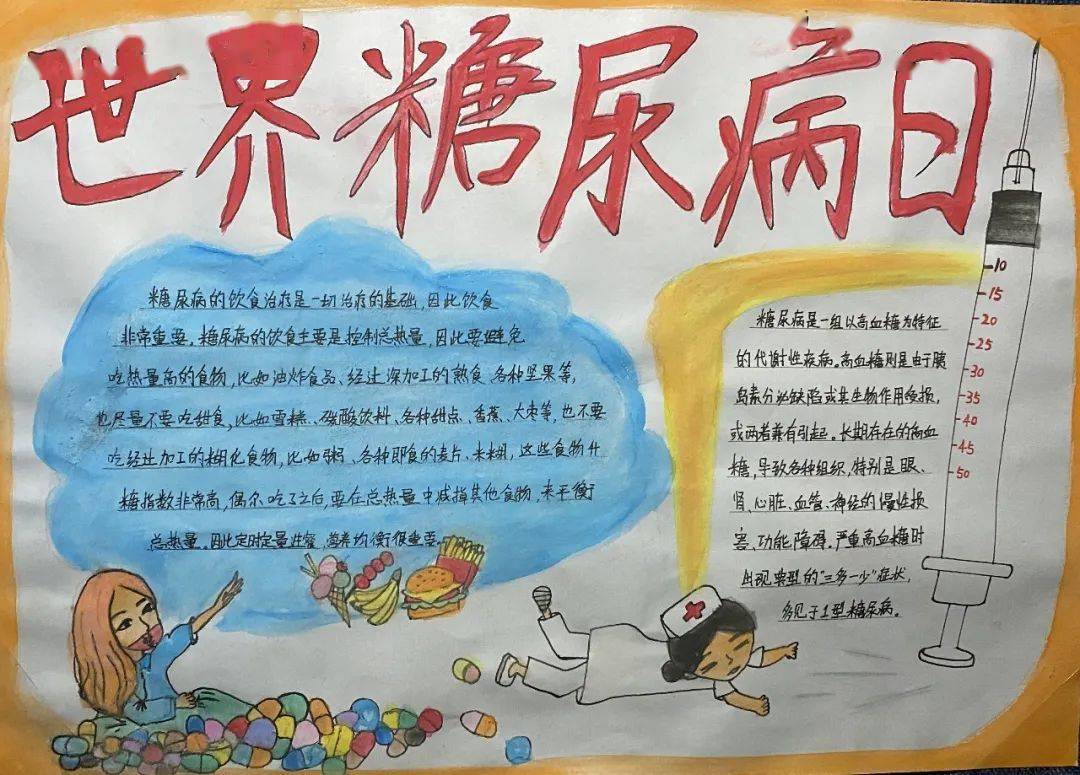 世界糖尿病日
糖尿病的饮食治疗是一切治疗的基础,因此饮食
非常重要。糖尿病的饮食主要是控制总热量,因此要避免
吃热量高的食物,比如油炸食品、经过深加工的熟食、各种坚果等,
也尽量不要吃甜食,比如雪糕、碳酸饮料、各种甜点、香蕉、大枣等,也不要
吃经过加工的糊化食物,比如粥、各种即食的麦片、米糊,这些食物升
糖指数非常高,偶尔吃了之后,要在总热量中减掉其他食物,来平衡
总热量。因此定时定量进餐,营养均衡很重要。
糖尿病是一组以高血糖为特征
的代谢性疾病。高血糖则是由于胰
岛素分泌缺陷或其生物作用受损,
或两者兼有引起。长期存在的高血
糖,导致各种组织,特别是眼、
肾、心脏、血管、神经的慢性损
害、功能障碍。严重高血糖时
出现典型的“三多一少”症状,
多见于1型糖尿病。
10
15
20
25
30
35
40
45
50